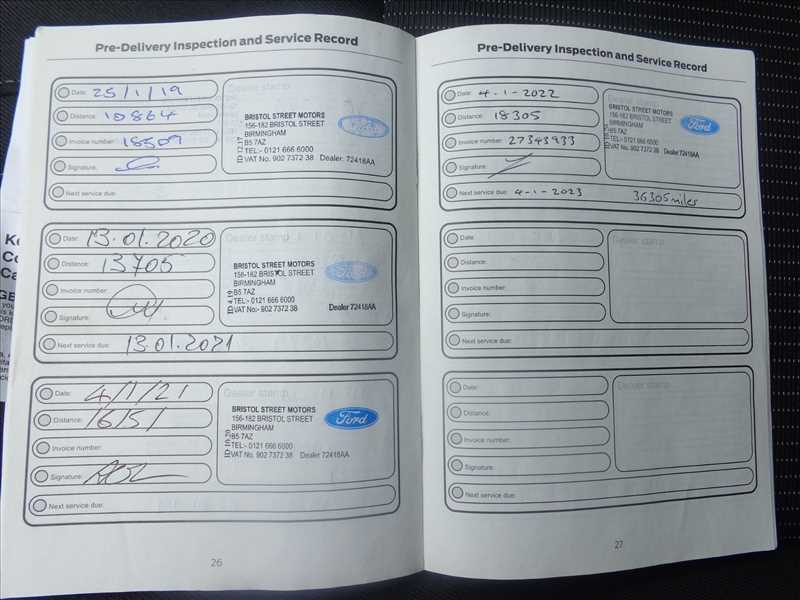 Pre-Delivery Inspection and Service Record
Date: 25/1/19
Distance: 10864
Invoice number: 18509
Signature:
Next service due:
Dealer stamp
BRISTOL STREET MOTORS
156-182 BRISTOL STREET
BIRMINGHAM
B5 7AZ
TEL:- 0121 666 6000
VAT No. 902 7372 38 Dealer: 72418AA
Date: 13.01.2020
Distance: 13705
Invoice number:
Signature:
Next service due: 13.01.2021
Dealer stamp
BRISTOL STREET MOTORS
156-182 BRISTOL STREET
BIRMINGHAM
B5 7AZ
TEL:- 0121 666 6000
VAT No:- 902 7372 38 Dealer 72418AA
Ford
Date: 4/1/21
Distance: 16151
Invoice number:
Signature:
Next service due:
Dealer stamp
BRISTOL STREET MOTORS
156-182 BRISTOL STREET
BIRMINGHAM
B5 7AZ
TEL:- 0121 666 6000
VAT No. 902 7372 38 Dealer 72418AA
Ford
26
Pre-Delivery Inspection and Service Record
Date: 4-1-2022
Distance: 18305
Invoice number: 27343933
Signature:
Next service due: 4-1-2023 36305miles
Dealer stamp
BRISTOL STREET MOTORS
156-182 BRISTOL STREET
BIRMINGHAM
B5 7AZ
TEL:- 0121 666 6000
VAT No. 902 7372 38 Dealer: 72418AA
Ford
Date:
Distance:
Invoice number:
Signature:
Next service due:
Dealer stamp
Date:
Distance:
Invoice number:
Signature:
Next service due:
Dealer stamp
27